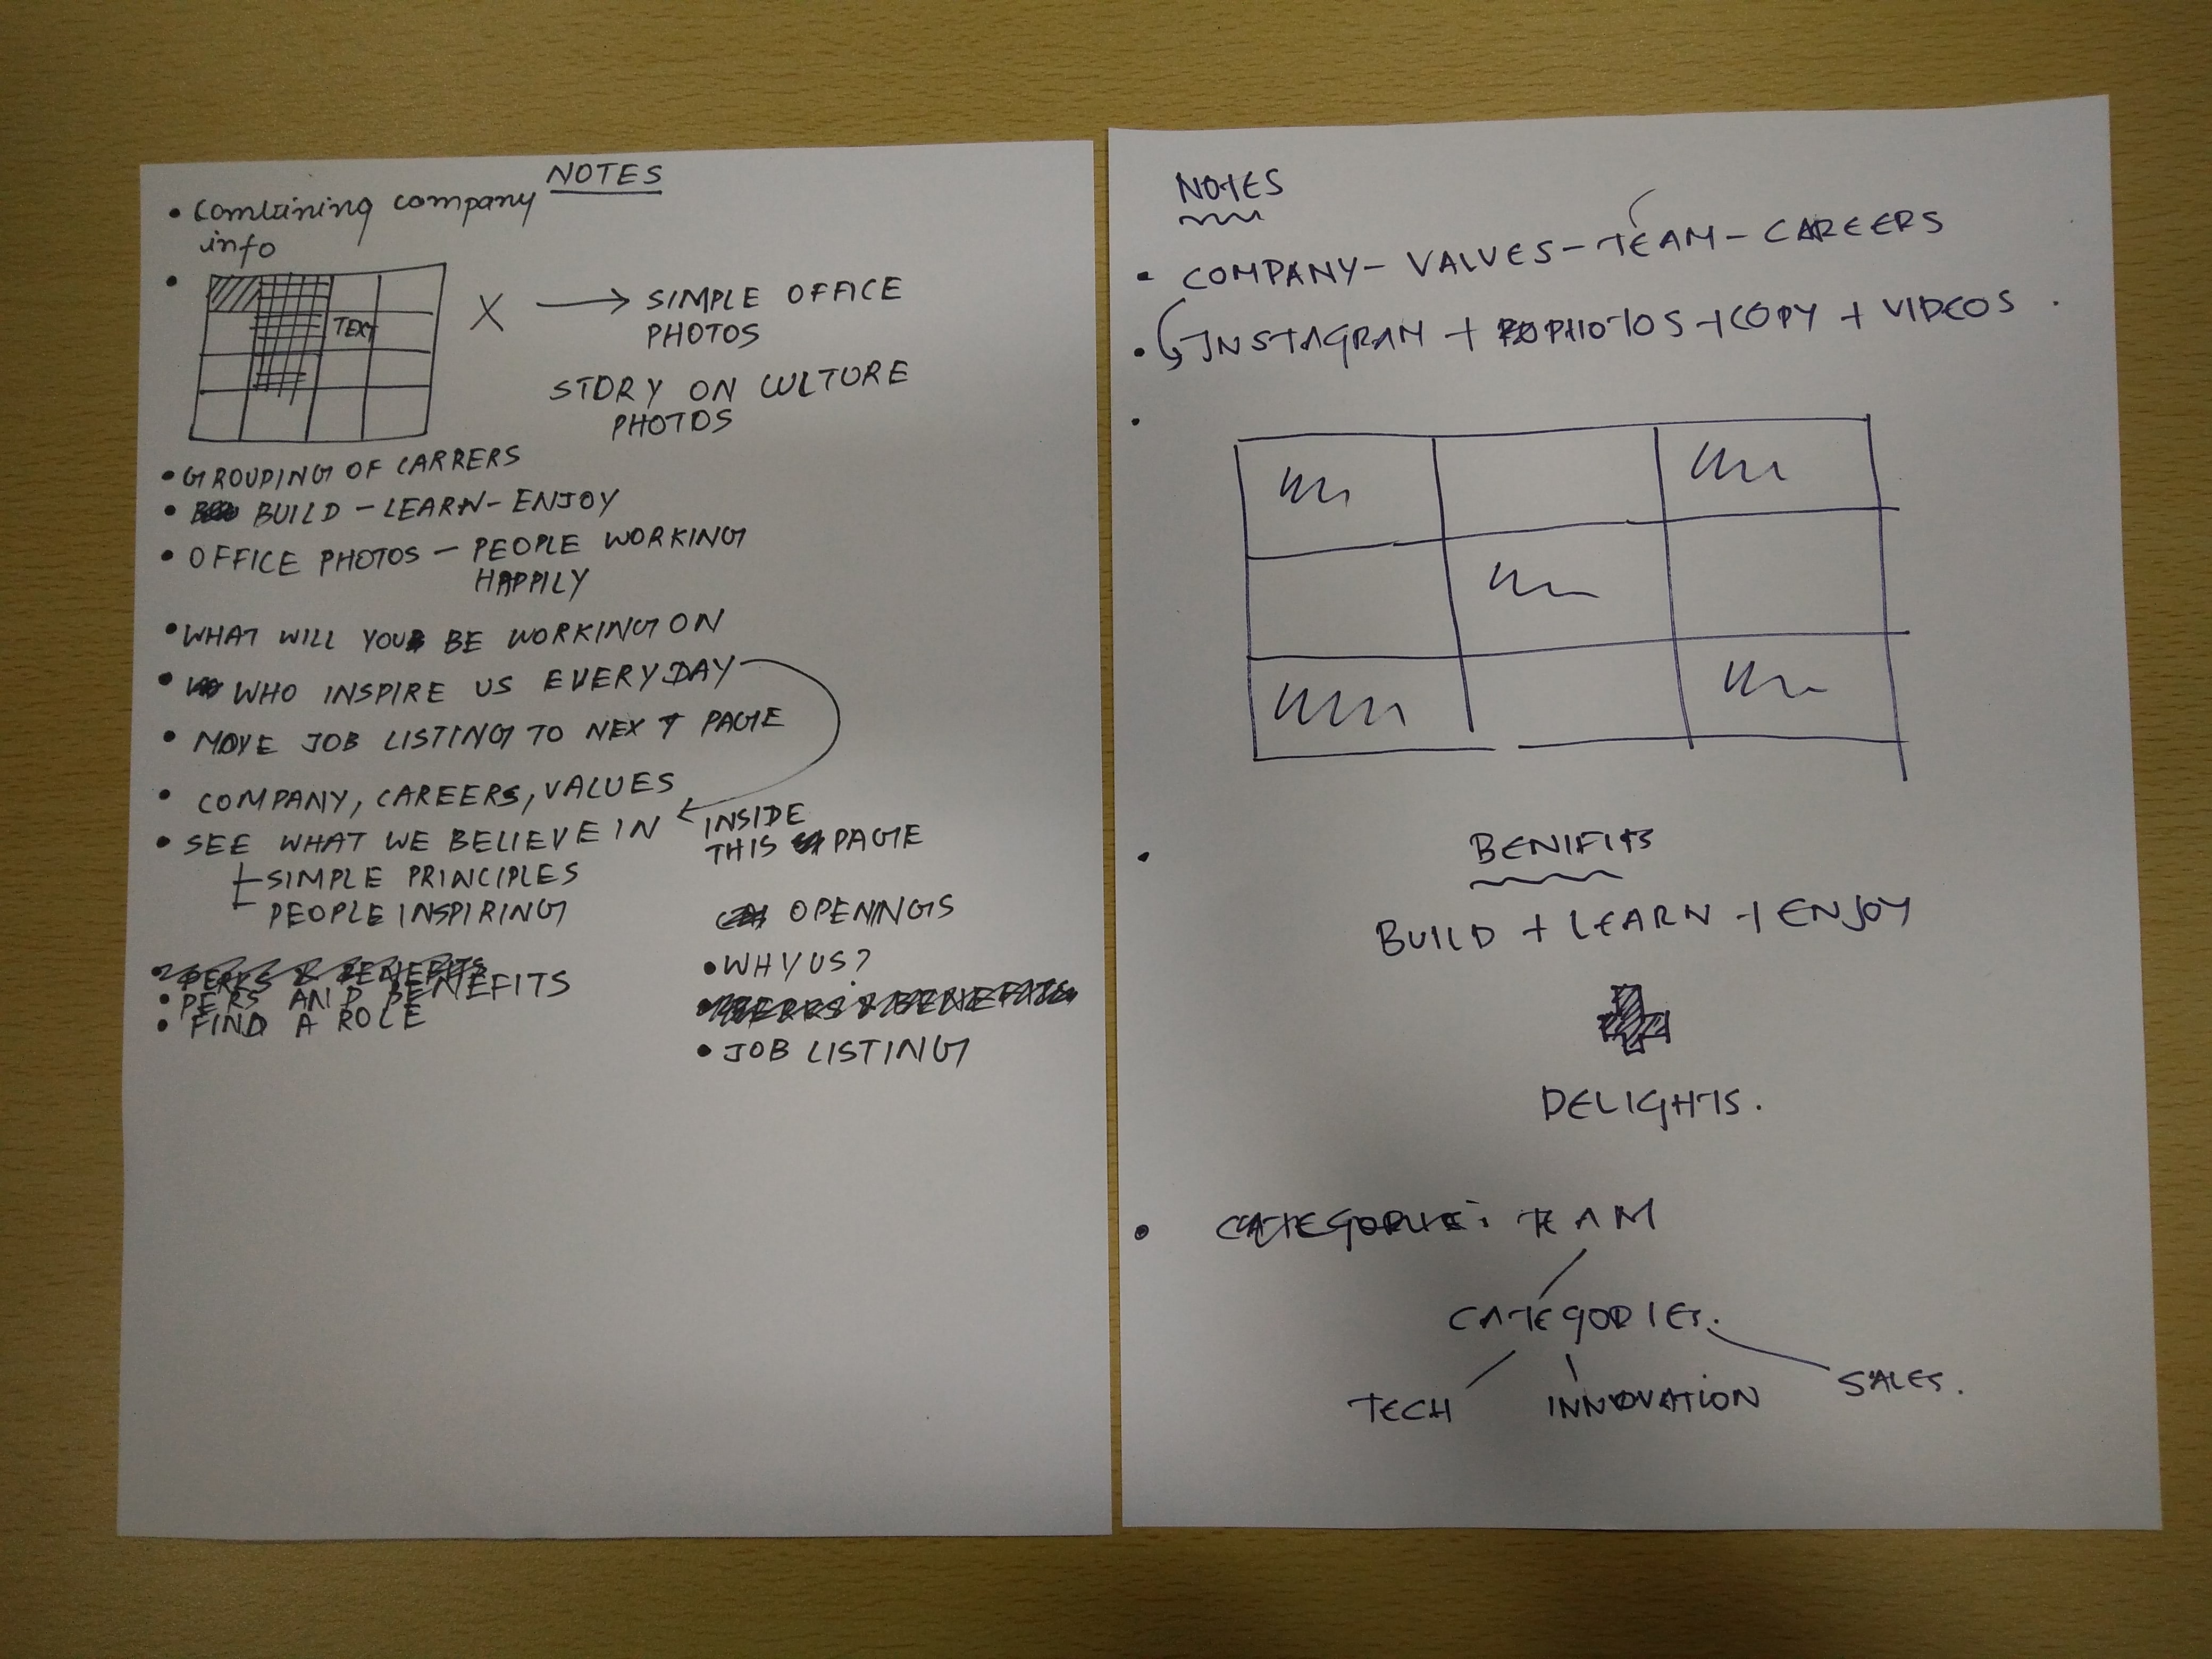 NOTES
• Combining company
info
•
TEXT
X → SIMPLE OFFICE
PHOTOS
STORY ON CULTURE
PHOTOS
• GROUPING OF CARRERS
• BUILD – LEARN – ENJOY
• OFFICE PHOTOS – PEOPLE WORKING
HAPPILY
• WHAT WILL YOU BE WORKING ON
• WHO INSPIRE US EVERYDAY
• MOVE JOB LISTING TO NEXT PAGE
• COMPANY, CAREERS, VALUES
• SEE WHAT WE BELIEVE IN
SIMPLE PRINCIPLES
PEOPLE INSPIRING
• PERKS & BENEFITS
• PERS AND BENEFITS
• FIND A ROLE
INSIDE
THIS PAGE
OPENINGS
• WHY US?
• PERKS & BENEFITS
• JOB LISTING
NOTES
• COMPANY – VALUES – TEAM – CAREERS
• INSTAGRAM + PHOTOS + COPY + VIDEOS .
•
• BENIFITS
BUILD + LEARN + ENJOY
DELIGHTS.
• CATEGORIE: TEAM
CATEGORIES.
TECH INNOVATION SALES.